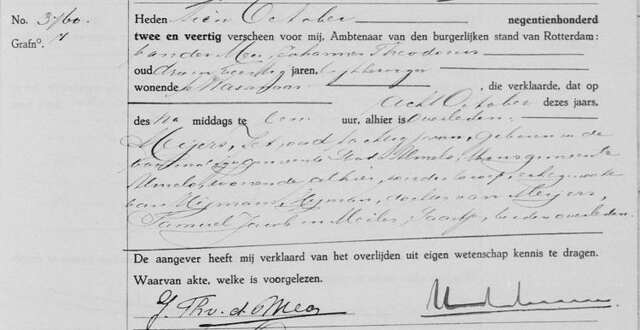 No. 3760. Heden tien October negentienhonderd
Grafno. twee en veertig verscheen voor mij, Ambtenaar van den burgerlijken stand van Rotterdam:
van der Meer, Johannes Theodorus
oud jaren,
wonende te Wassenaar, die verklaarde, dat op
acht October dezes jaars,
des na middags te een uur, alhier is overleden:
Meijers, oud jaar, geboren in de
voormalige gemeente Stad Almelo, thans gemeente
Almelo, wonende alhier, zonder beroep, weduwe
van Hijman, dochter van Meijers,
Samuel Jacob en Meiler, Saartje, beiden overleden.
De aangever heeft mij verklaard van het overlijden uit eigen wetenschap kennis te dragen.
Waarvan akte, welke is voorgelezen.
J. Th. v. d. Meer